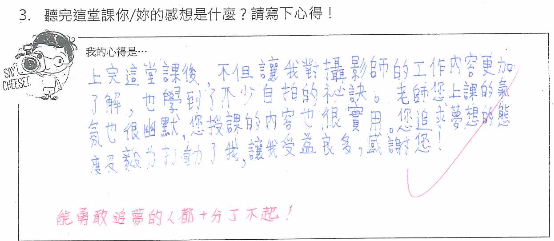 3. 聽完這堂課你/妳的感想是什麼？請寫下心得！
我的心得是…
SAY CHEESE!
上完這堂課後，不但讓我對攝影師的工作內容更加
了解，也學到了不少自拍的祕訣。老師您上課的氣
氛也很幽默，您授課的內容也很實用。您追求夢想的態
度及毅力打動了我，讓我受益良多，感謝您！
能勇敢追夢的人都十分了不起！